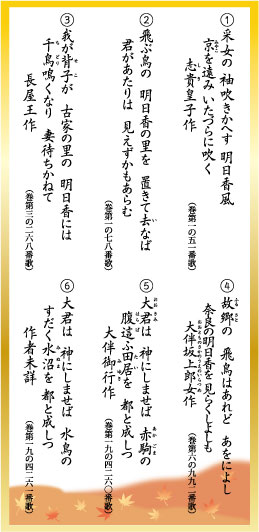 ①采女の 袖吹きかへす 明日香風
京を遠み いたづらに吹く
志貴皇子作
（巻第一の五一番歌）
②飛ぶ鳥の 明日香の里を 置きて去なば
君があたりは 見えずかもあらむ
（巻第一の七八番歌）
③我が背子が 古家の里の 明日香には
千鳥鳴くなり 妻待ちかねて
長屋王作
（巻第三の二六八番歌）
④故郷の 飛鳥はあれど あをによし
奈良の明日香を 見らくしよしも
大伴坂上郎女作
（巻第六の九九二番歌）
⑤大君は 神にしませば 赤駒の
腹這ふ田居を 都と成しつ
大伴御行作
（巻第一九の四二六〇番歌）
⑥大君は 神にしませば 水鳥の
すだく水沼を 都と成しつ
作者未詳
（巻第一九の四二六一番歌）